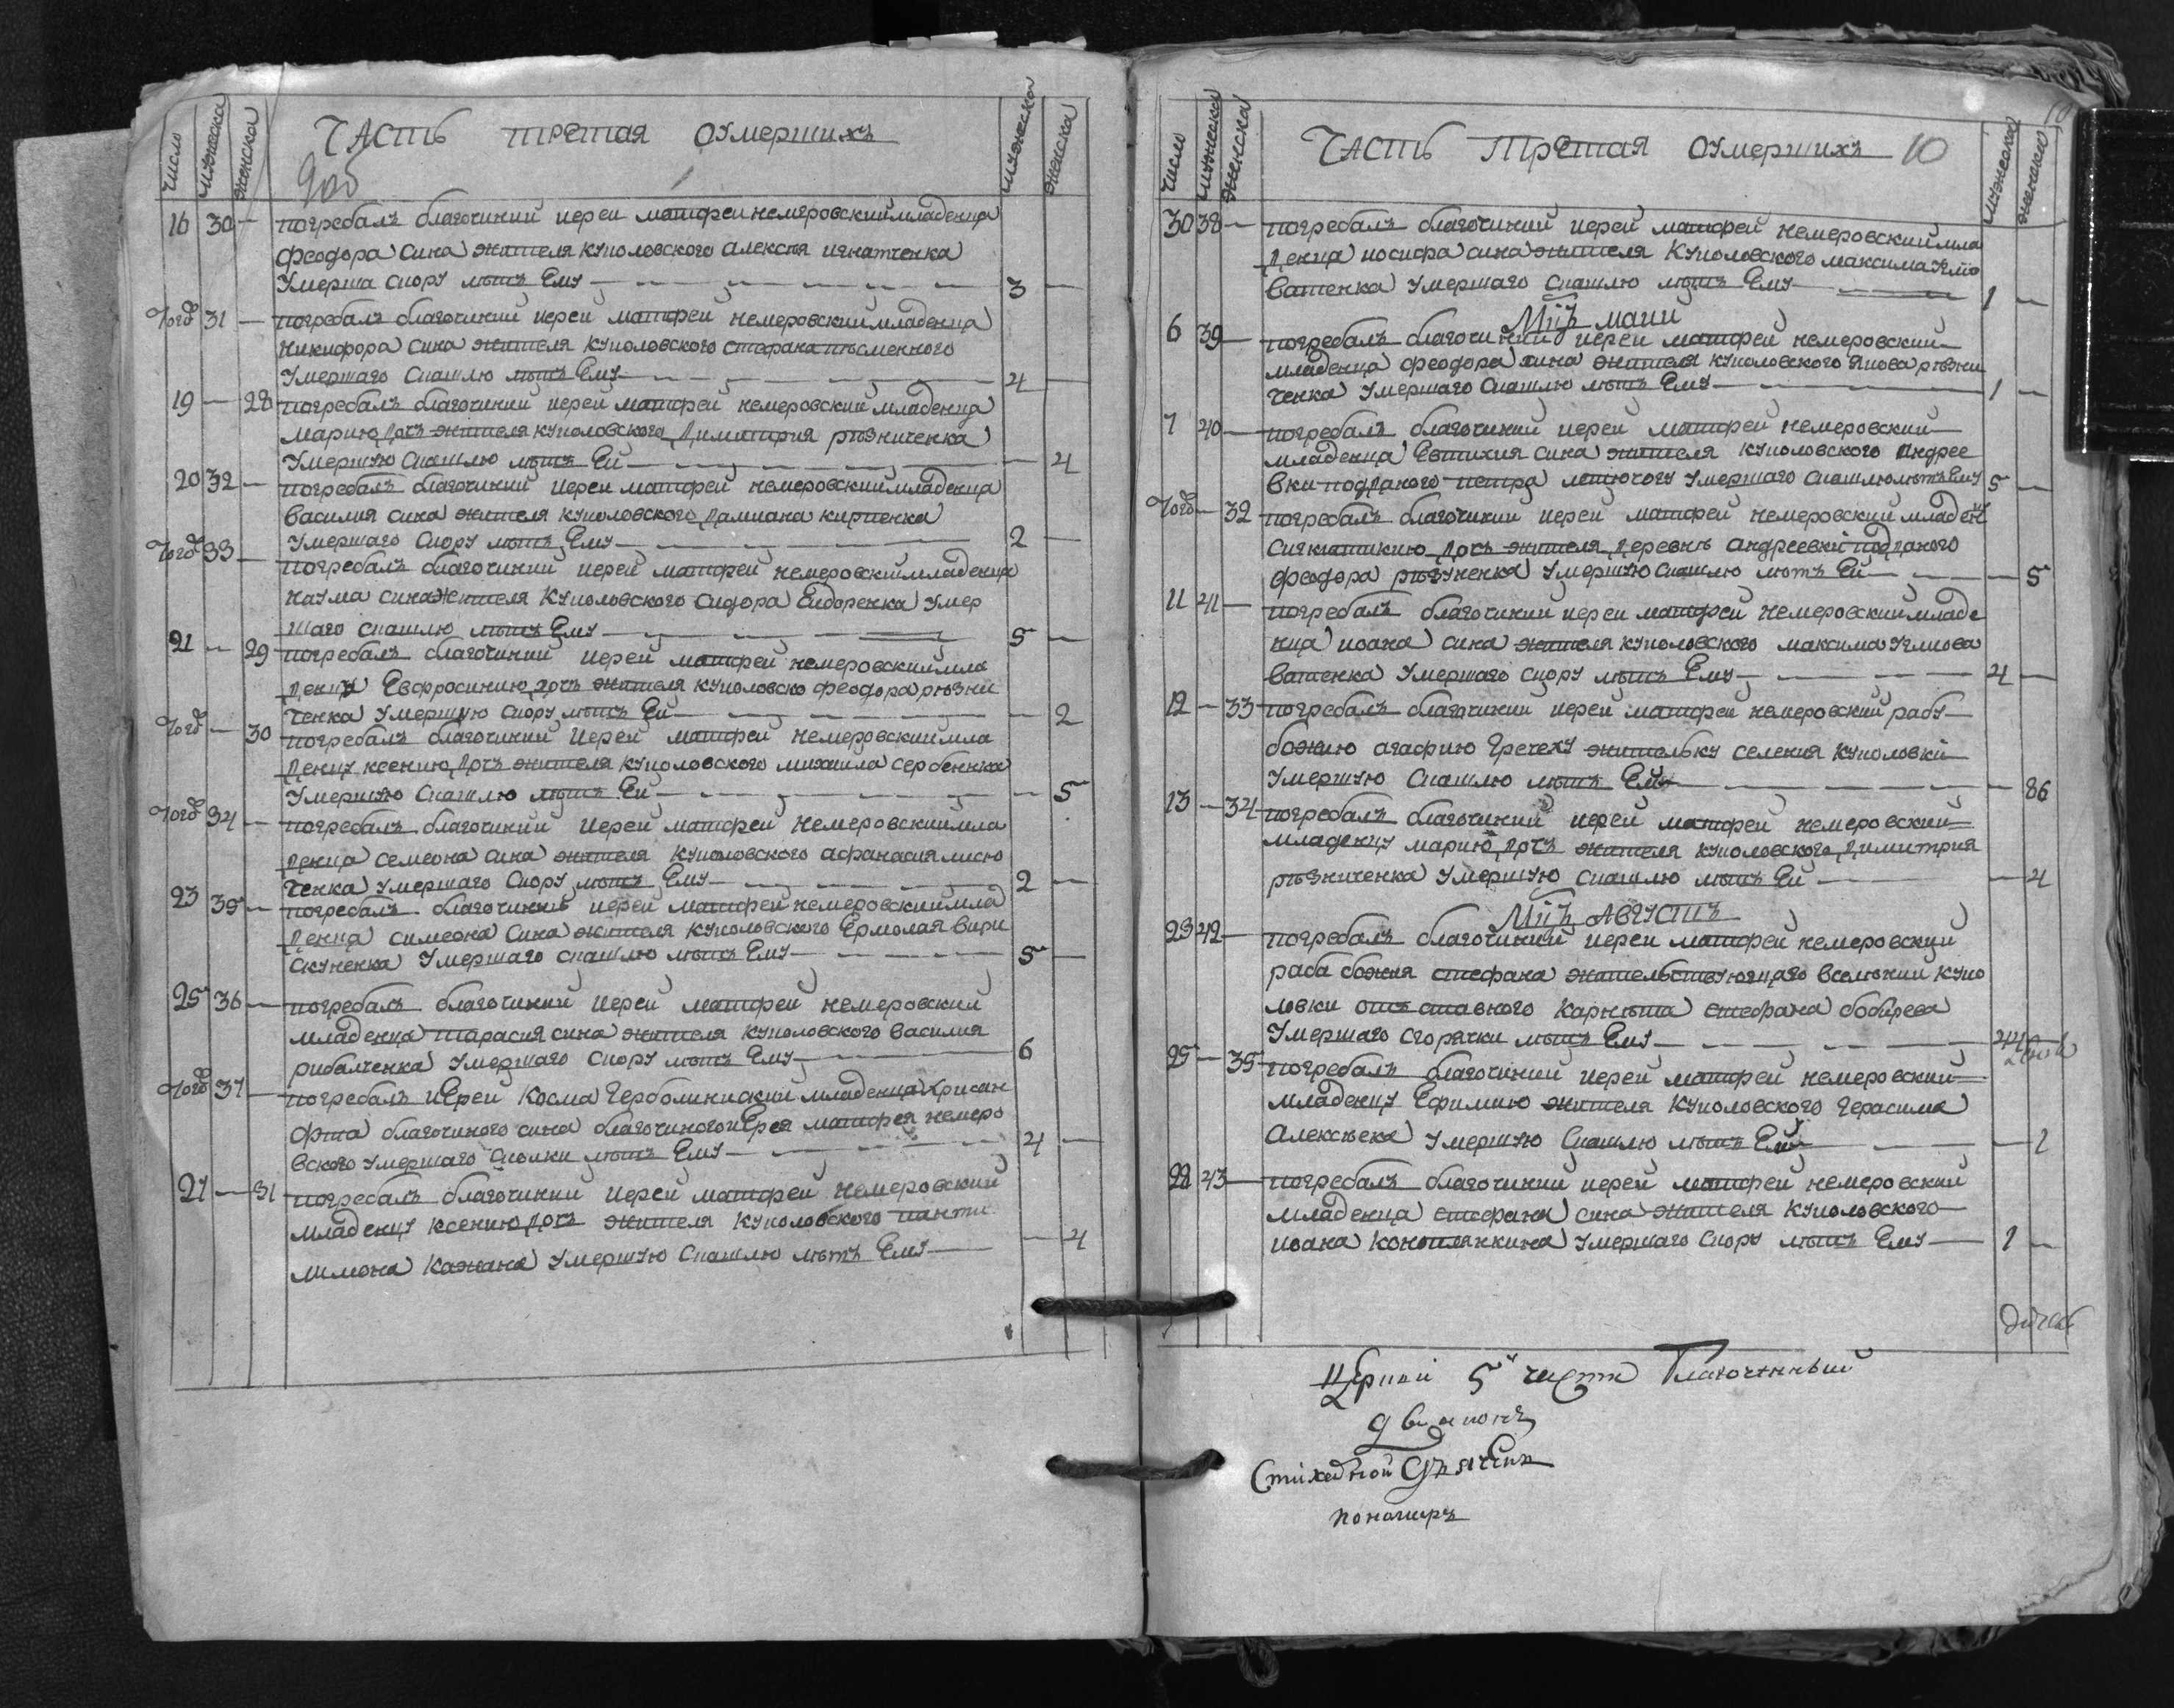 число мужеска женска ЧАСТЬ третая оумершихъ мужеска женска
9об
16 30 — погребалъ благочиний иереи матфеи немеровский младенца
феодора сина жителя куполовского алексѣя игнатченка
Умерша скору лѣтъ Ему 3 —
Тогд 31 — погребалъ благочиний иереи матфеи немеровский младенца
никифора сина жителя куполовского стефана писменного
Умершаго спашлю лѣтъ Ему 4 —
19 — 28 погребалъ благочиний иереи матфеи немеровский младенца
марию дочъ жителя куполовского димитрия рѣзниченка
Умершую спашлю лѣтъ Ей — 4
20 32 — погребалъ благочиний иереи матфей немеровский младенца
василия сина жителя куполовского дамиана
Умершаго скору лѣтъ Ему 2 —
Тогд 33 — погребалъ благочиний иереи матфей немеровский младенца
наума сина жителя куполовского сидора Сидоренка умер
шаго спашлю лѣтъ Ему 5 —
21 — 29 погребалъ благочиний иерей матфей немеровский мла
денцу Евфросинию дочъ жителя куполовско феодора рѣзни
ченка Умершую скору лѣтъ Ей — 2
Тогд — 30 погребалъ благочиний Иерей матфей немеровский мла
денцу ксению дочъ жителя куполовского михаила
Умершую спашлю лѣтъ Ей — 5
Тогд 34 — погребалъ благочиний Иерей матфей немеровский мла
денца семеона сина жителя куполовского афанасия лисю
ченка Умершаго скору лѣтъ Ему 2 —
23 35 — погребалъ благочиний иереи матфей немеровский мла
денца симеона сина жителя куполовского Ермолая
Умершаго спашлю лѣтъ Ему 5 —
25 36 — погребалъ благочиний Иерей матфей немеровский
младенца тарасия сина жителя куполовского василия
рибалченка Умершаго скору лѣтъ Ему 6
Тогд 37 — погребалъ Иерей Косма младенца хрисан
фта благочиного сина благочиного иЕрея матфея немеро
вского умершаго лѣтъ Ему 4 —
27 — 31 погребалъ благочиний Иереи матфеи немеровский
младенцу ксению дочъ жителя куполовского панти
лимона кажана Умершую спашлю лѣтъ Ему — 4
число мужеска женска ЧАСТЬ Третая оумершихъ 10 мужеска женска
30 38 — погребалъ благочиний иерей матфей немеровский мла
денца иосифа сина жителя Куполовского максима
Умершаго спашлю лѣтъ Ему 1 —
Мцъ маий
6 39 — погребалъ благочиний иерей матфей немеровский
младенца феодора сина жителя куполовского якова рѣзни
ченка Умершаго спашлю лѣтъ Ему 1 —
7 40 — погребалъ благочиний иерей матфей немеровский
младенца Евтихия сина жителя куполовского андрее
вки подданого петра умершаго спашлю лѣтъ Ему 5 —
Тогд — 32 погребалъ благочиний иереи матфей немеровский младен
дочъ жителя деревнѣ андреевки подданого
феодора умершую спашлю лѣтъ Ей — 5
11 41 — погребалъ благочиний иереи матфей немеровский младе
нца иоана сина жителя куполовского максима
Умершаго скору лѣтъ Ему 4 —
12 — 33 погребалъ благочиний иереи матфеи немеровский рабу
божию агафию Гречеху жителку селения куполовки
Умершую спашлю лѣтъ Ей — 86
13 — 34 погребалъ благочиний иереи матфеи немеровский
младенцу марию дочъ жителя куполовского димитрия
рѣзниченка Умершую спашлю лѣтъ Ей — 4
Мцъ АВГУСТЪ
23 42 — погребалъ благочиний иереи матфеи немеровский
раба божия стефана жительствующаго вселении купо
ловки отъ ставного стефана бобирева
Умершаго сгорячки лѣтъ Ему 44 —
25 — 35 погребалъ благочиний иерей матфей немеровский
младенцу Ефимию жителя куполовского герасима
алексѣека умершую спашлю лѣтъ Ей — 2
28 43 — погребалъ благочиний иерей матфей немеровский
младенца стефана сина жителя куполовского
иоана Умершаго скору лѣтъ Ему 1 —
Церкви 5й части Благочинный
Стихарной Дячекъ
пономаръ